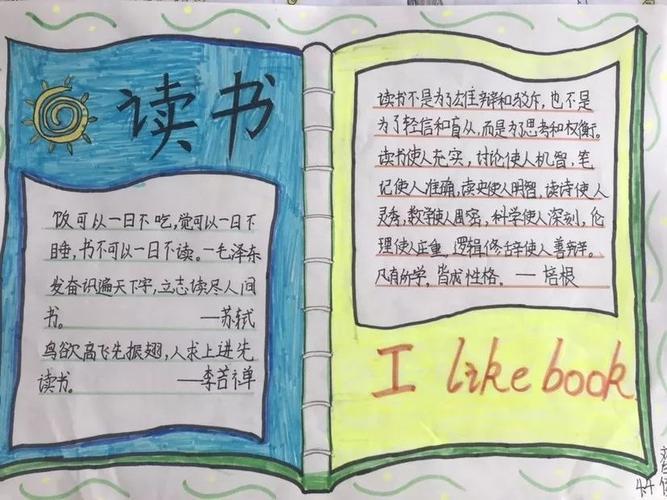 读书
饭可以一日不吃,觉可以一日不
睡,书不可以一日不读。—毛泽东
发奋识遍天下字,立志读尽人间
书。 —苏轼
鸟欲高飞先振翅,人求上进先
读书。 —李苦禅
读书不是为了雄辩和驳斥,也不是
为了轻信和盲从,而是为了思考和权衡。
读书使人充实,讨论使人机智,笔
记使人准确,读史使人明智,读诗使人
灵秀,数学使人周密,科学使人深刻,伦
理使人庄重,逻辑修辞使人善辩。
凡有所学,皆成性格。—培根
I like book